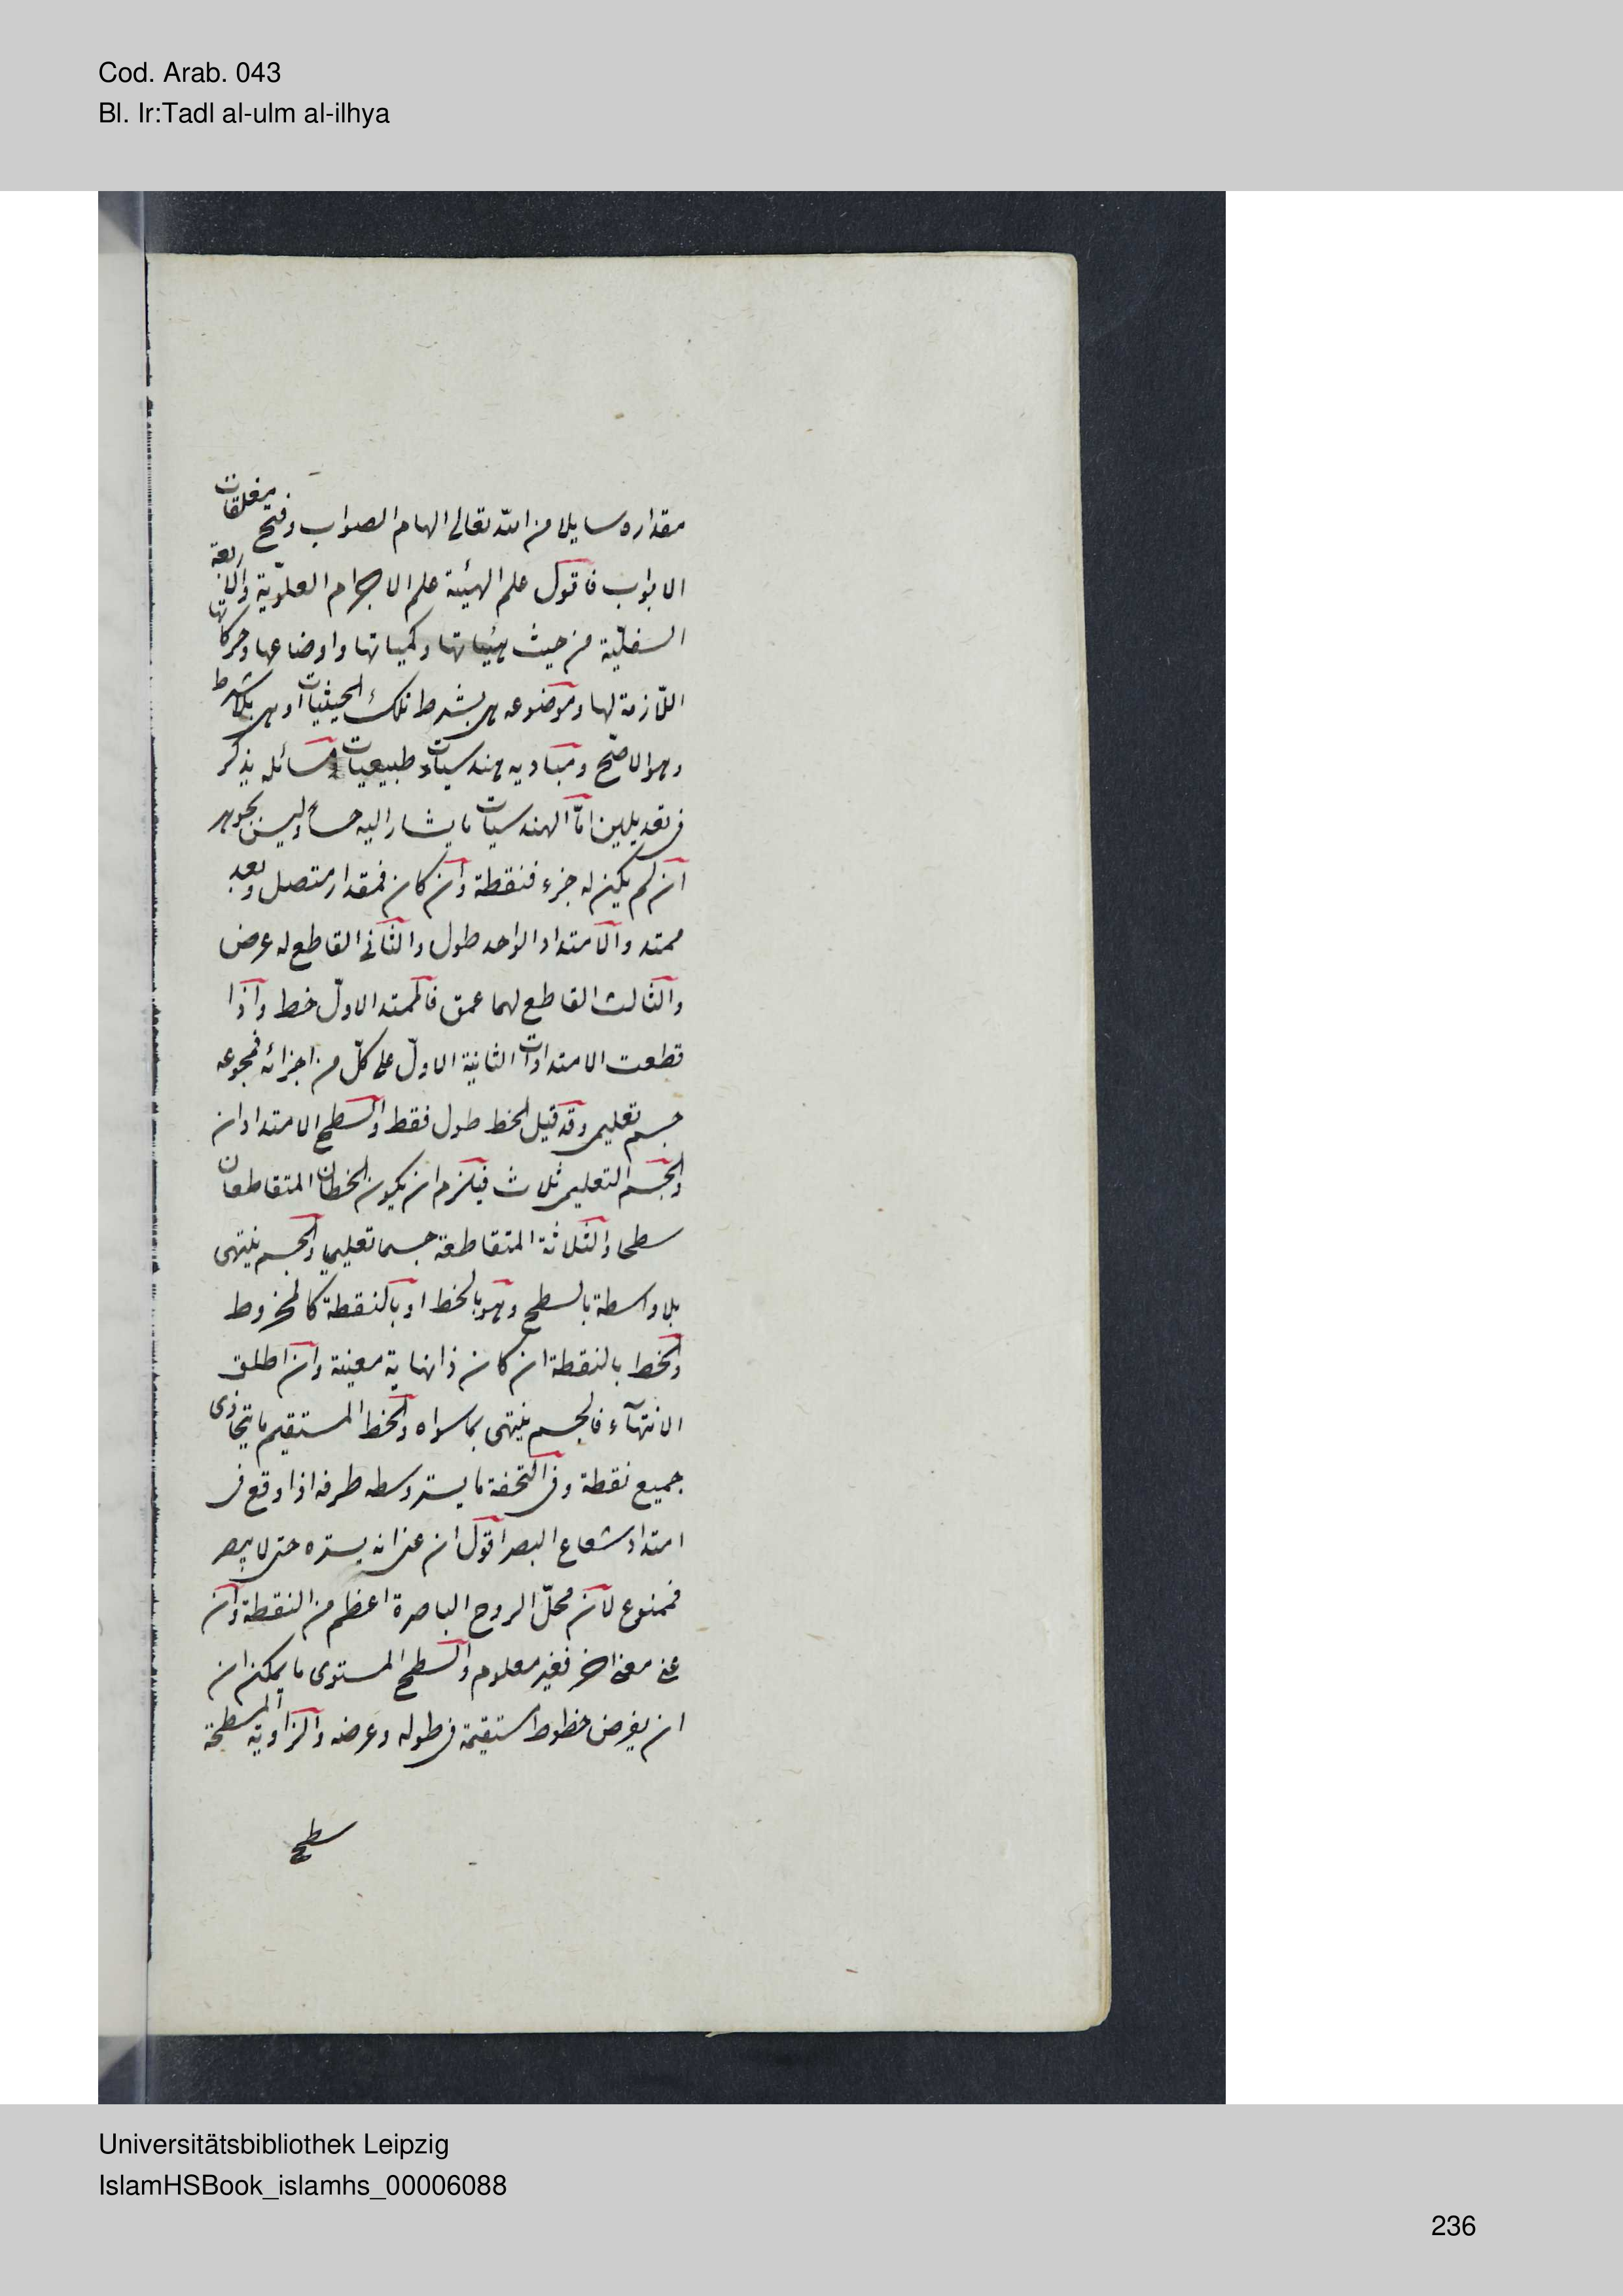 Cod. Arab. 043
Bl. Ir:Tadl al-ulm al-ilhya
مقداره سايلا من الله تعالى الهام الصواب وفتح مغلقات
الابواب فاقول علم الهيئة علم الاجرام العلويّة والرابعة
السفليّة من حيث هيئياتها وكمياتها واوضاعها وحركاتها
اللّازمة لها وموضوعه هى بشرط تلك الحيثيات او هى بلا شرط
وهو الاصّح ومباديه هندسيات طبيعيات ومسائله يذكر
فى تعديلين امّا الهندسيات ما يشار اليه حسا وليس بجوهر
ان لم يكن له جزء فنقطة وان كان فمقدار متصل وبعد
ممتد والامتداد الواحد طول والثانى القاطع له عرض
والثالث القاطع لهما عمق فالممتد الاوّل خط واذا
قطعت الامتدادات الثانية الاوّل على كلّ من اجزائه فمجموعه
جسم تعليمى وقد قيل الخط طول فقط والسطح الامتدادان
والجسم التعليمى ثلاث فيلزم ان يكون الخطان المتقاطعان
سطحا والثلاثة المتقاطعة جسما تعليميا والجسم ينتهى
بلا واسطة بالسطح وهو بالخط او بالنقطة كالمخروط
والخط بالنقطة ان كان ذا نهاية معينة وان اطلق
الانتهآء فالجسم ينتهى بما سواه والخط المستقيم ما يتحاذى
جميع نقطة وفى التحفة ما يستر وسطه طرفه اذا وقع فى
امتداد شعاع البصر اقول ان عنى انه يستره حتى لا يبصر
فممنوع لان محلّ الروح الباصرة اعظم من النقطة وان
عنى معنى اخر فغير معلوم والسطح المستوى ما يمكن ان
ان يفرض خطوط مستقيمة فى طوله وعرضه والزاوية المسطحة
سطح
Universitätsbibliothek Leipzig
IslamHSBook_islamhs_00006088
236